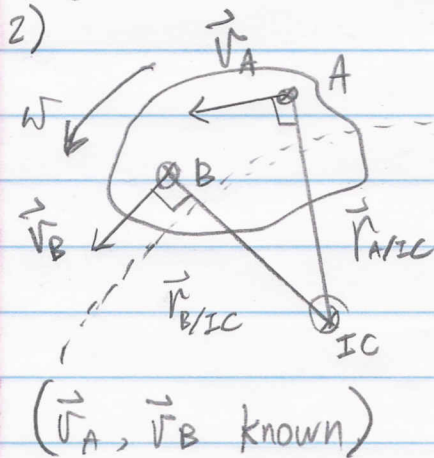 2)
v⃗_A
A
ω
B
v⃗_B
r⃗_A/IC
r⃗_B/IC
IC
(v⃗_A, v⃗_B known)